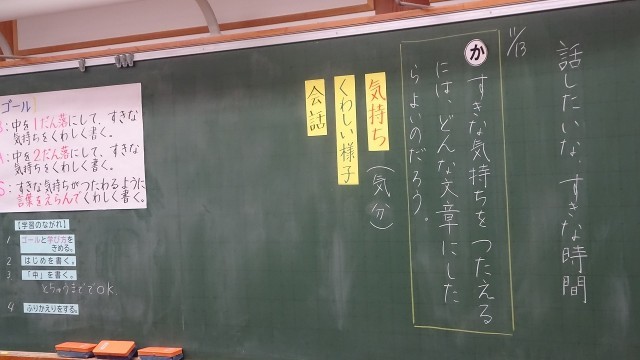 話したいな、すきな時間
11/13
か すきな気持ちをつたえる
には、どんな文章にした
らよいのだろう。
気持ち（気分）
くわしい様子
会話
ゴール
B：中を1だん落にして、すきな
気持ちをくわしく書く。
A：中を2だん落にして、すきな
気持ちをくわしく書く。
S：すきな気持ちがつたわるように
言葉をえらんでくわしく書く。
【学習のながれ】
1 ゴールと学び方を
きめる。
2 はじめを書く。
3 「中」を書く。
とちゅうまででOK
4 ふりかえりをする。